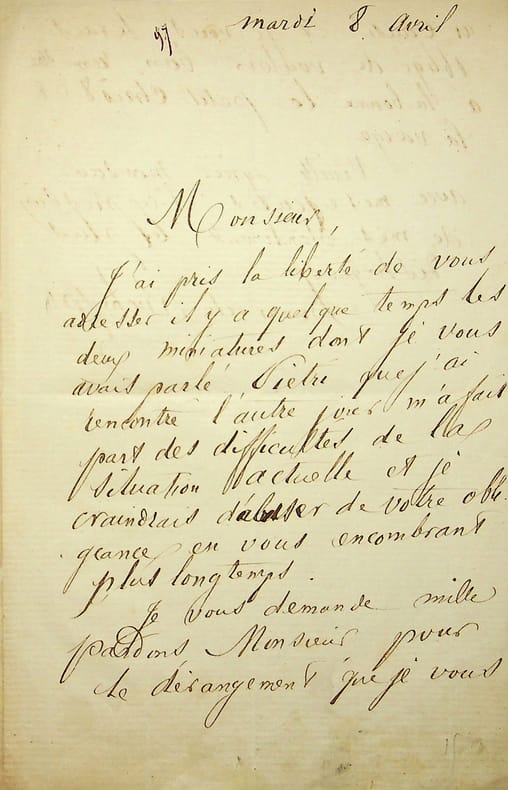 mardi 8 Avril
97
Monsieur,
J'ai pris la liberté de vous
adresser il y a quelque temps les
deux miniatures dont je vous
avais parlé. Piétri que j'ai
rencontré l'autre jour m'a fait
part des difficultés de la
situation actuelle et je
craindrais d'abuser de votre obli
geance en vous encombrant
plus longtemps.
Je vous demande mille
pardons, Monsieur pour
le dérangement que je vous